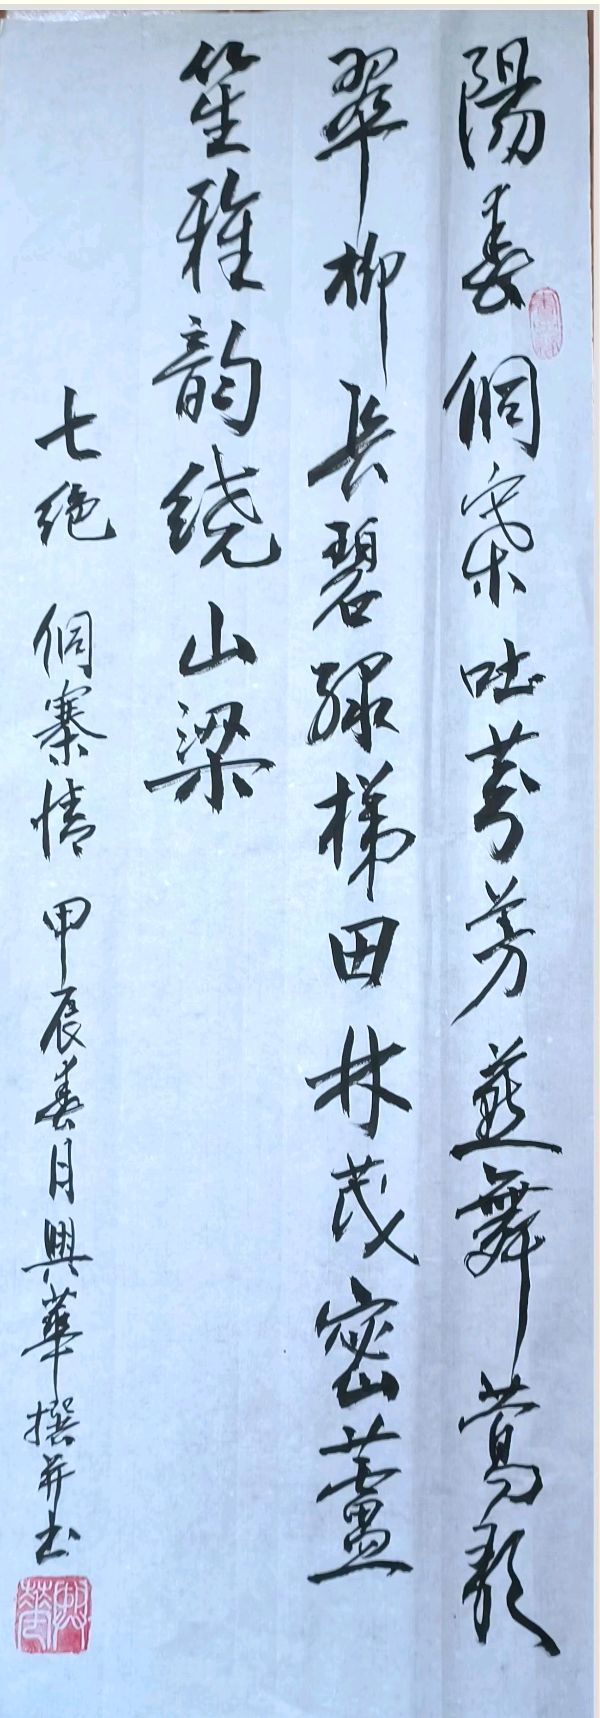 陽春侗寨吐芬芳燕舞莺歌
翠柳長碧緑梯田林茂密蘆
笙雅韵绕山梁
七绝 侗寨情 甲辰春月興華撰并书
興華